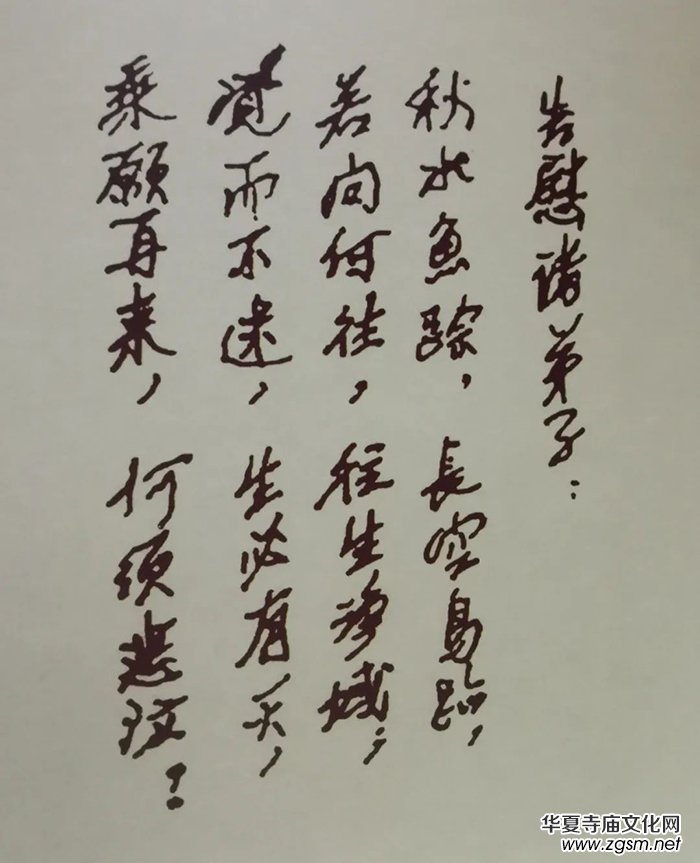 告慰诸弟子：
秋水鱼踪，長空鳥跡，
若问何往，往生淨域；
觉而不迷，生必有灭，
乘願再来，何须悲泣！
华夏寺庙文化网
www.zgsm.net